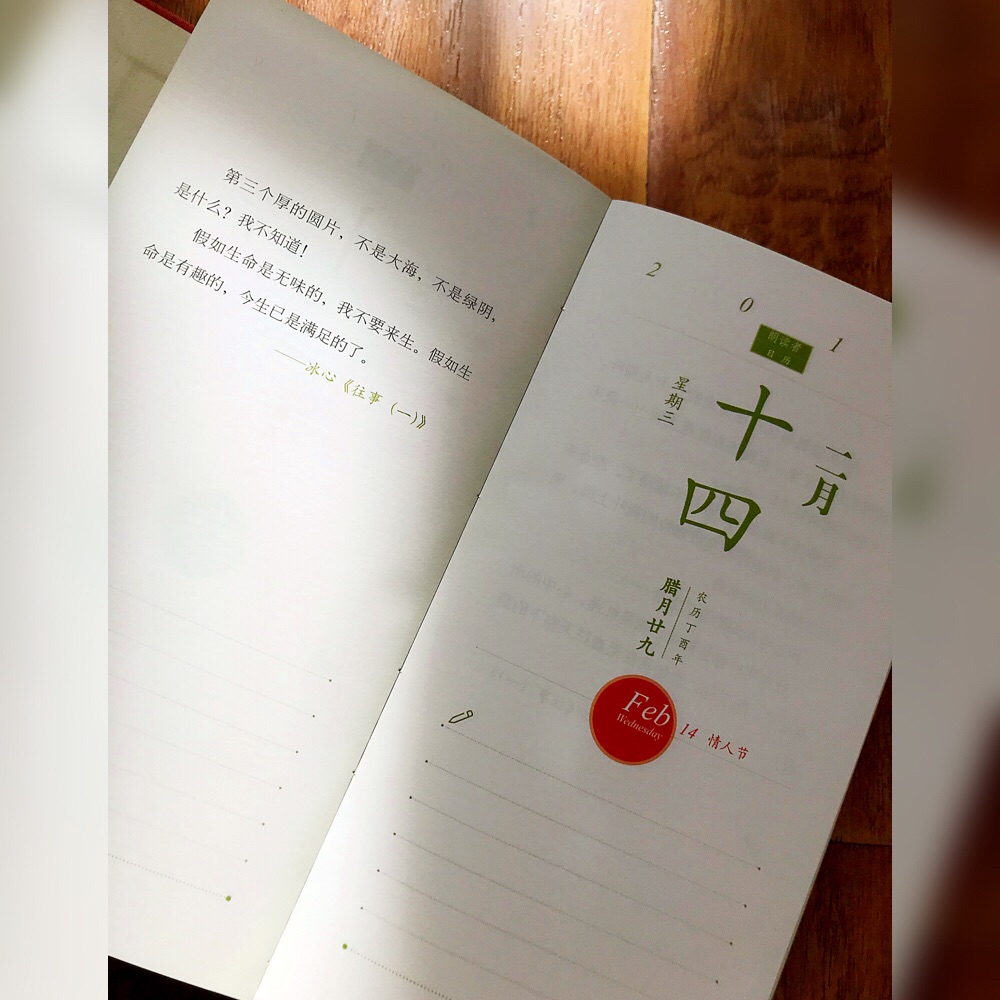 第三个厚的圆片，不是大海，不是绿阴，
是什么？我不知道！
假如生命是无味的，我不要来生。假如生
命是有趣的，今生已是满足的了。
——冰心《往事（一）》
2 0 1
朗读者
日历
二月
十四
星期三
农历丁酉年
腊月廿九
Feb
Wednesday
14 情人节